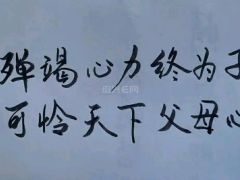 殚竭心力终为子
可怜天下父母心